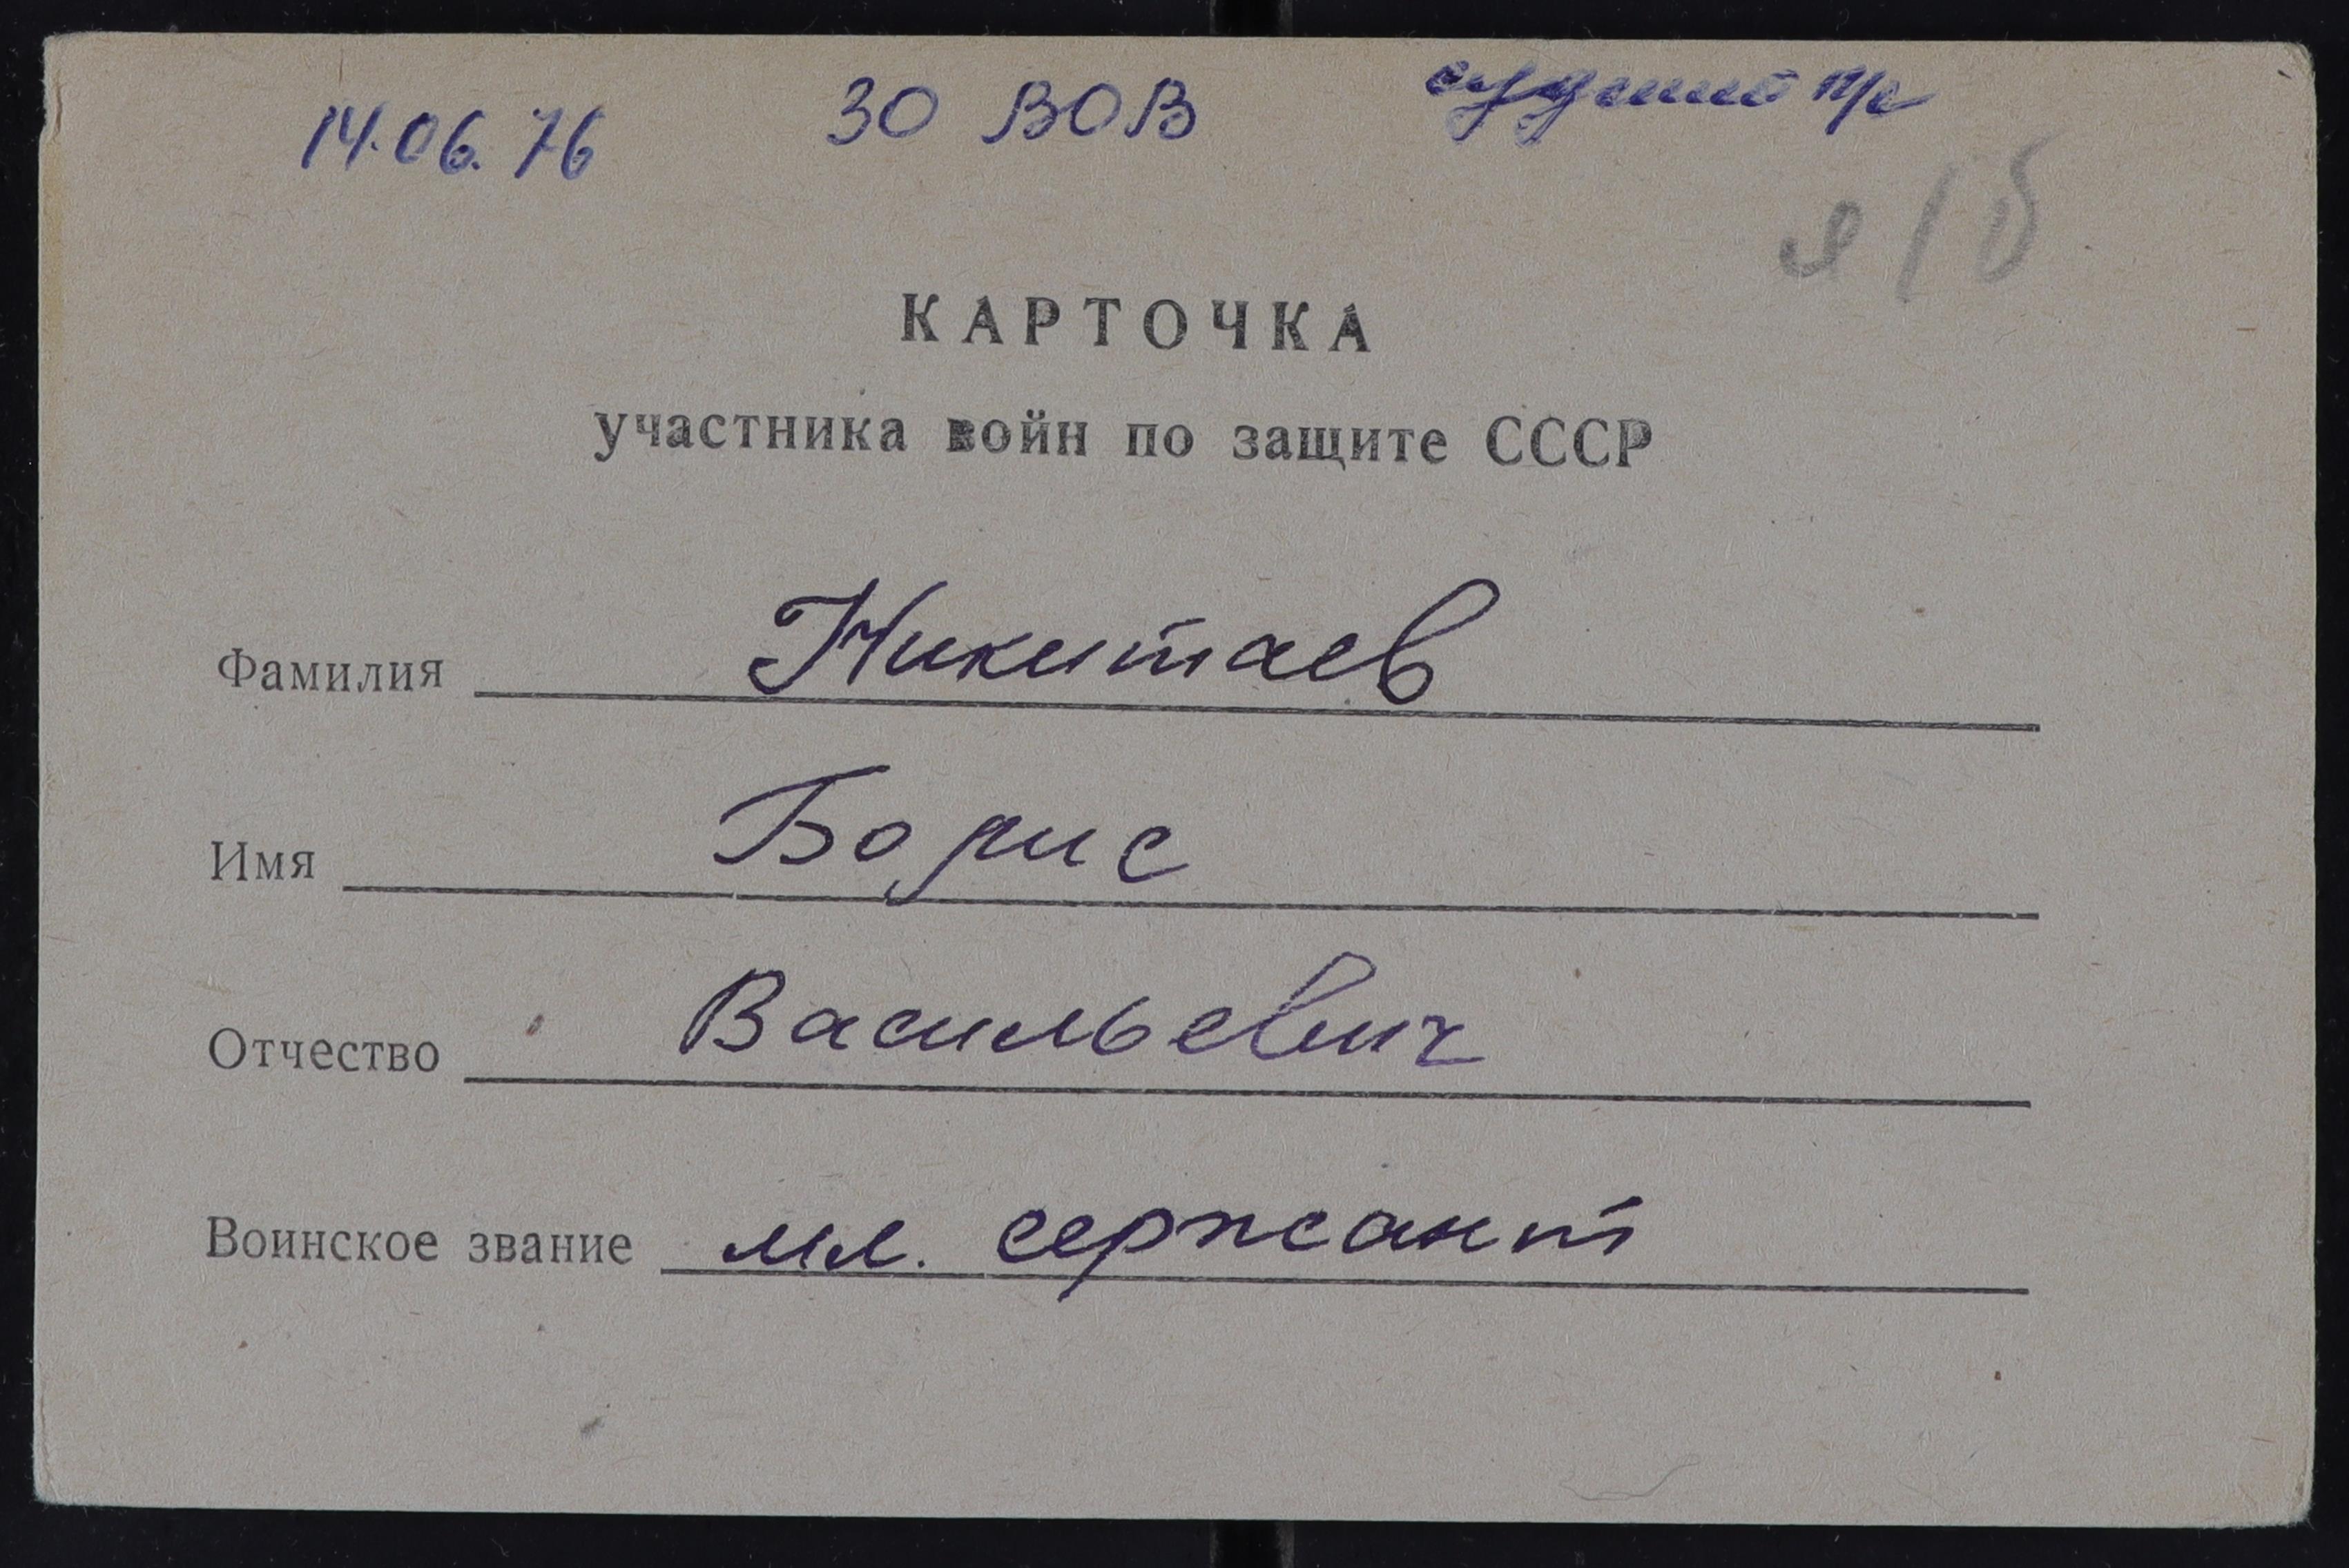 14.06.76 30 ВОВ
КАРТОЧКА
участника войн по защите СССР
Фамилия Никитаев
Имя Борис
Отчество Васильевич
Воинское звание мл. сержант